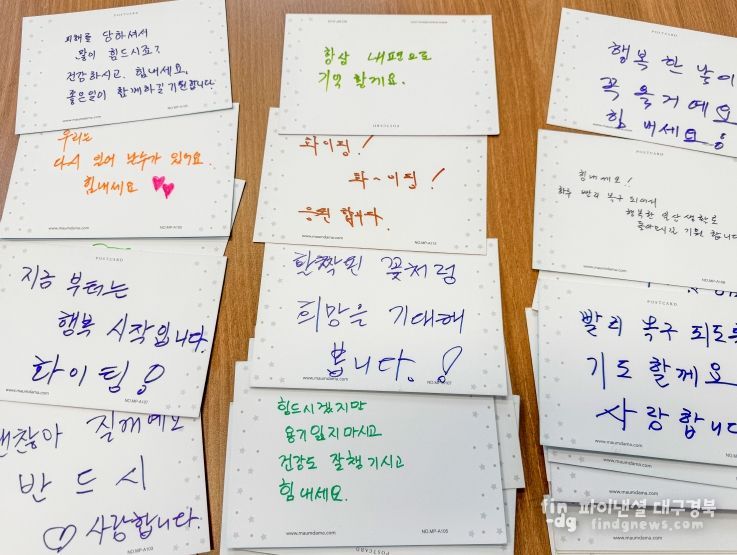 POSTCARD
피해를 당하셔서
많이 힘드시죠?
건강하시고, 힘내세요,
좋은일이 함께하길 기원합니다.
www.maumdama.com
NO.MP-A107
우리는
다시 일어 날수가 있어요.
힘내세요
www.maumdama.com
NO.MP-A105
POSTCARD
지금 부터는
행복 시작입니다.
화이팅!
www.maumdama.com
NO.MP-A107
괜찮아 질꺼예요
반드시
사랑합니다.
NO.MP-A103
www.maumdama.com
항상 내편으로
기억 할게요.
POSTCARD
화이팅!
화~이팅!
응원합니다.
www.maumdama.com
활짝핀 꽃처럼
희망을 기대해
봅니다.!
www.maumdama.com
NO.MP-A107
힘드시겠지만
용기잃지마시고
건강도 잘챙기시고
힘내세요.
www.maumdama.com
NO.MP-A105
POSTCARD
행복 한 날이
꼭 올거예요
힘 내세요!
POSTCARD
힘내세요!!
하루 빨리 복구 되어서
행복한 일상생활로
돌아가시길 기원 합니다
www.maumdama.com
POSTCARD
빨리 복구 되도록
기도 할께요
사랑합니다
www.maumdama.com
www.maumdama.com
fin
dg
파이낸셜 대구경북
findgnews.com